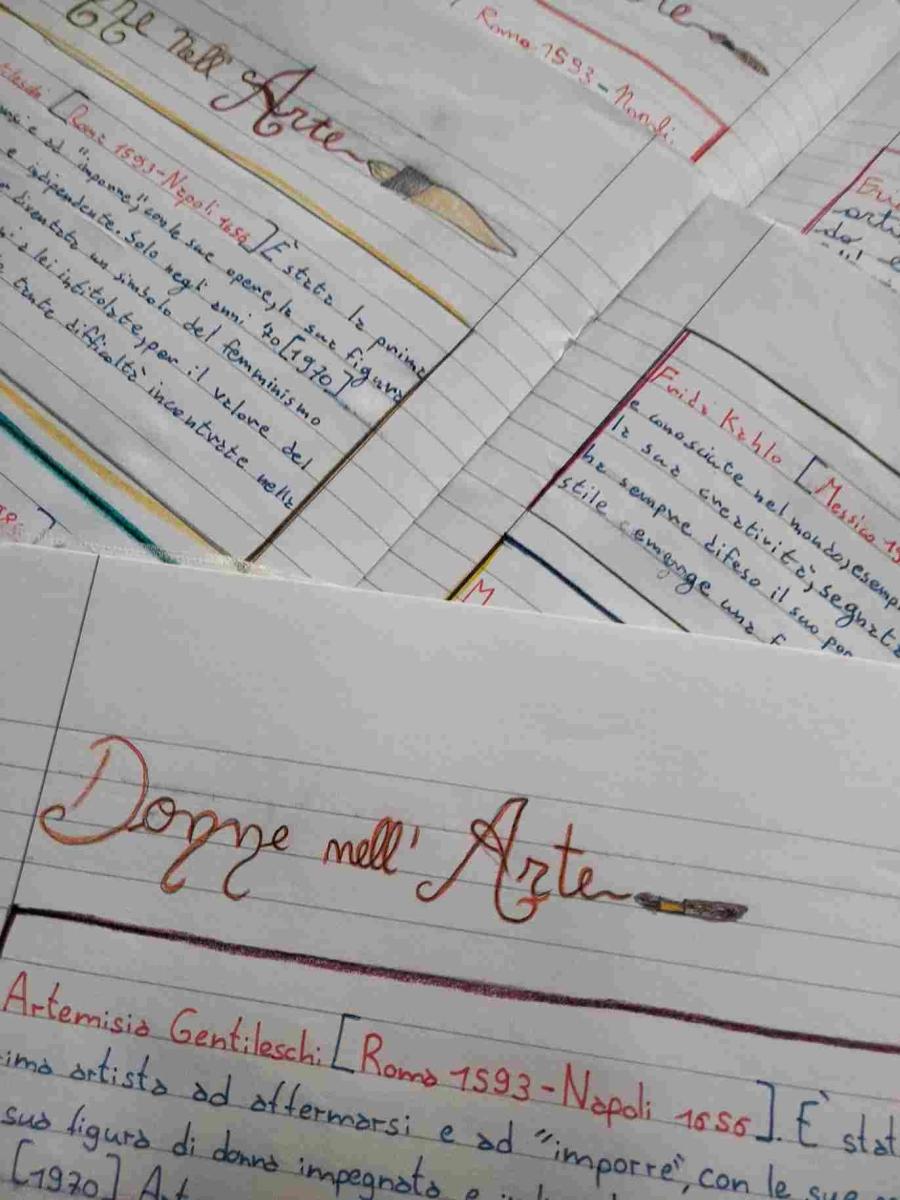 nell' Arte
[Roma 1593-Napoli 1656] È stata la prima
ad "imporre", con le sue opere, la sua figura
e indipendente. Solo negli anni '70 [1970]
diventata un simbolo del femminismo
a lei intitolate, per il valore del
tante difficoltà incontrate nella
Roma 1593-Napoli
arti
Frida Kahlo [Messico 19
e conosciute nel mondo, esemp
la sua creatività, segnata
ha sempre difeso il suo por
stile emerge una f
M
Donne nell' Arte
Artemisia Gentileschi [Roma 1593-Napoli 1656]. È stat
ima artista ad affermarsi e ad "imporre", con le sue
sua figura di donna impegnata e
[1970] Art